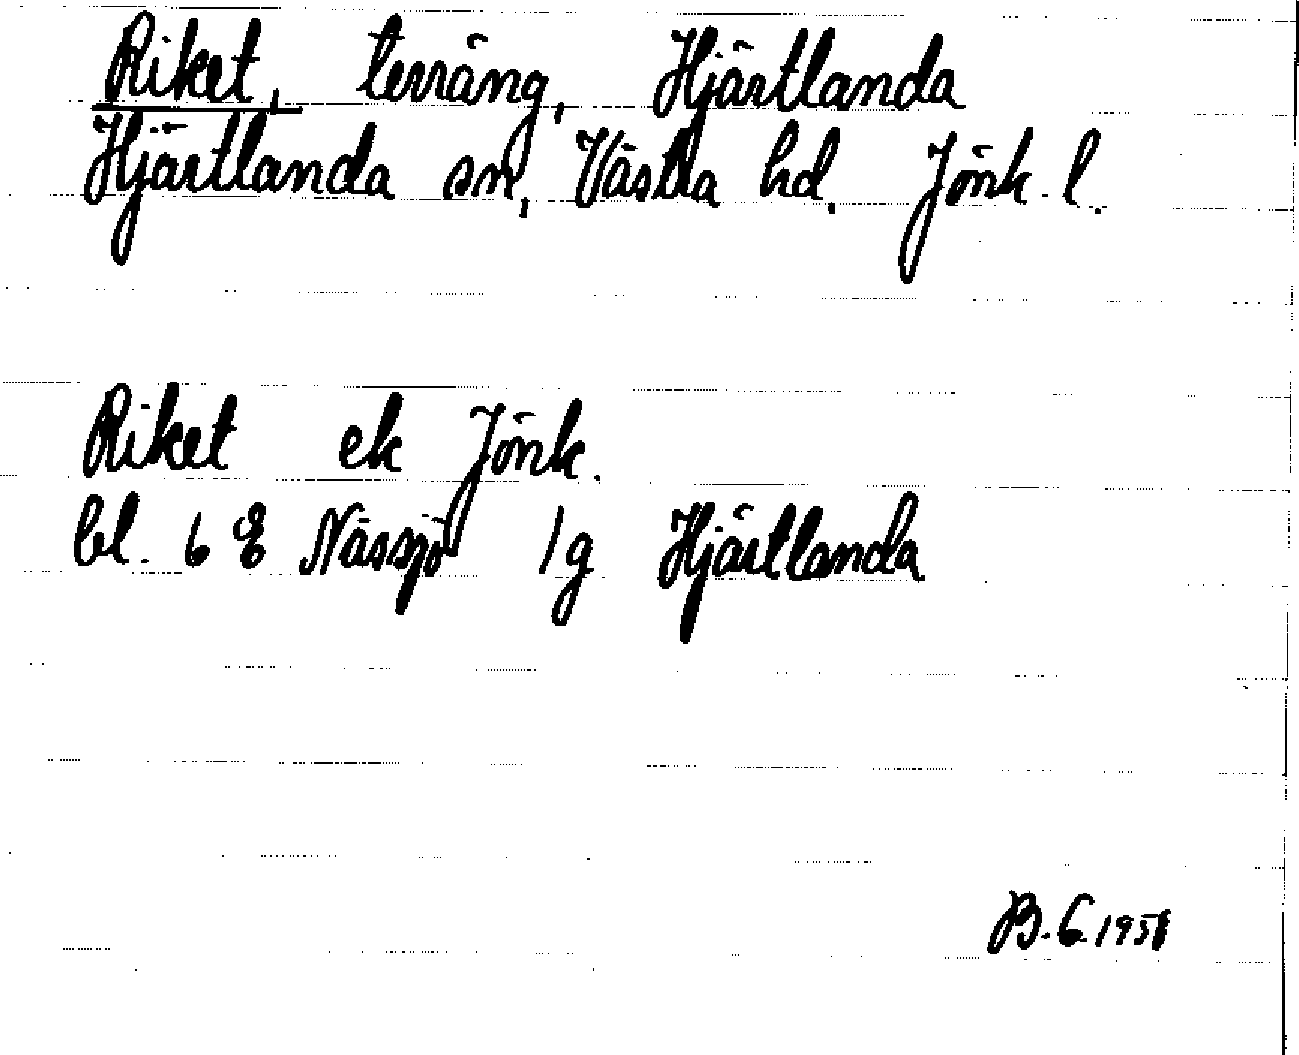 Riket, terräng, Hjärtlanda
Hjärtlanda sn, Västra hd. Jönk. l.
Riket ek Jönk.
bl. 6 E Nässjö 1g Hjärtlanda
B. G.